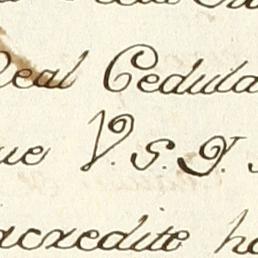 Real Cedula
que V.S.I.
acredite ha